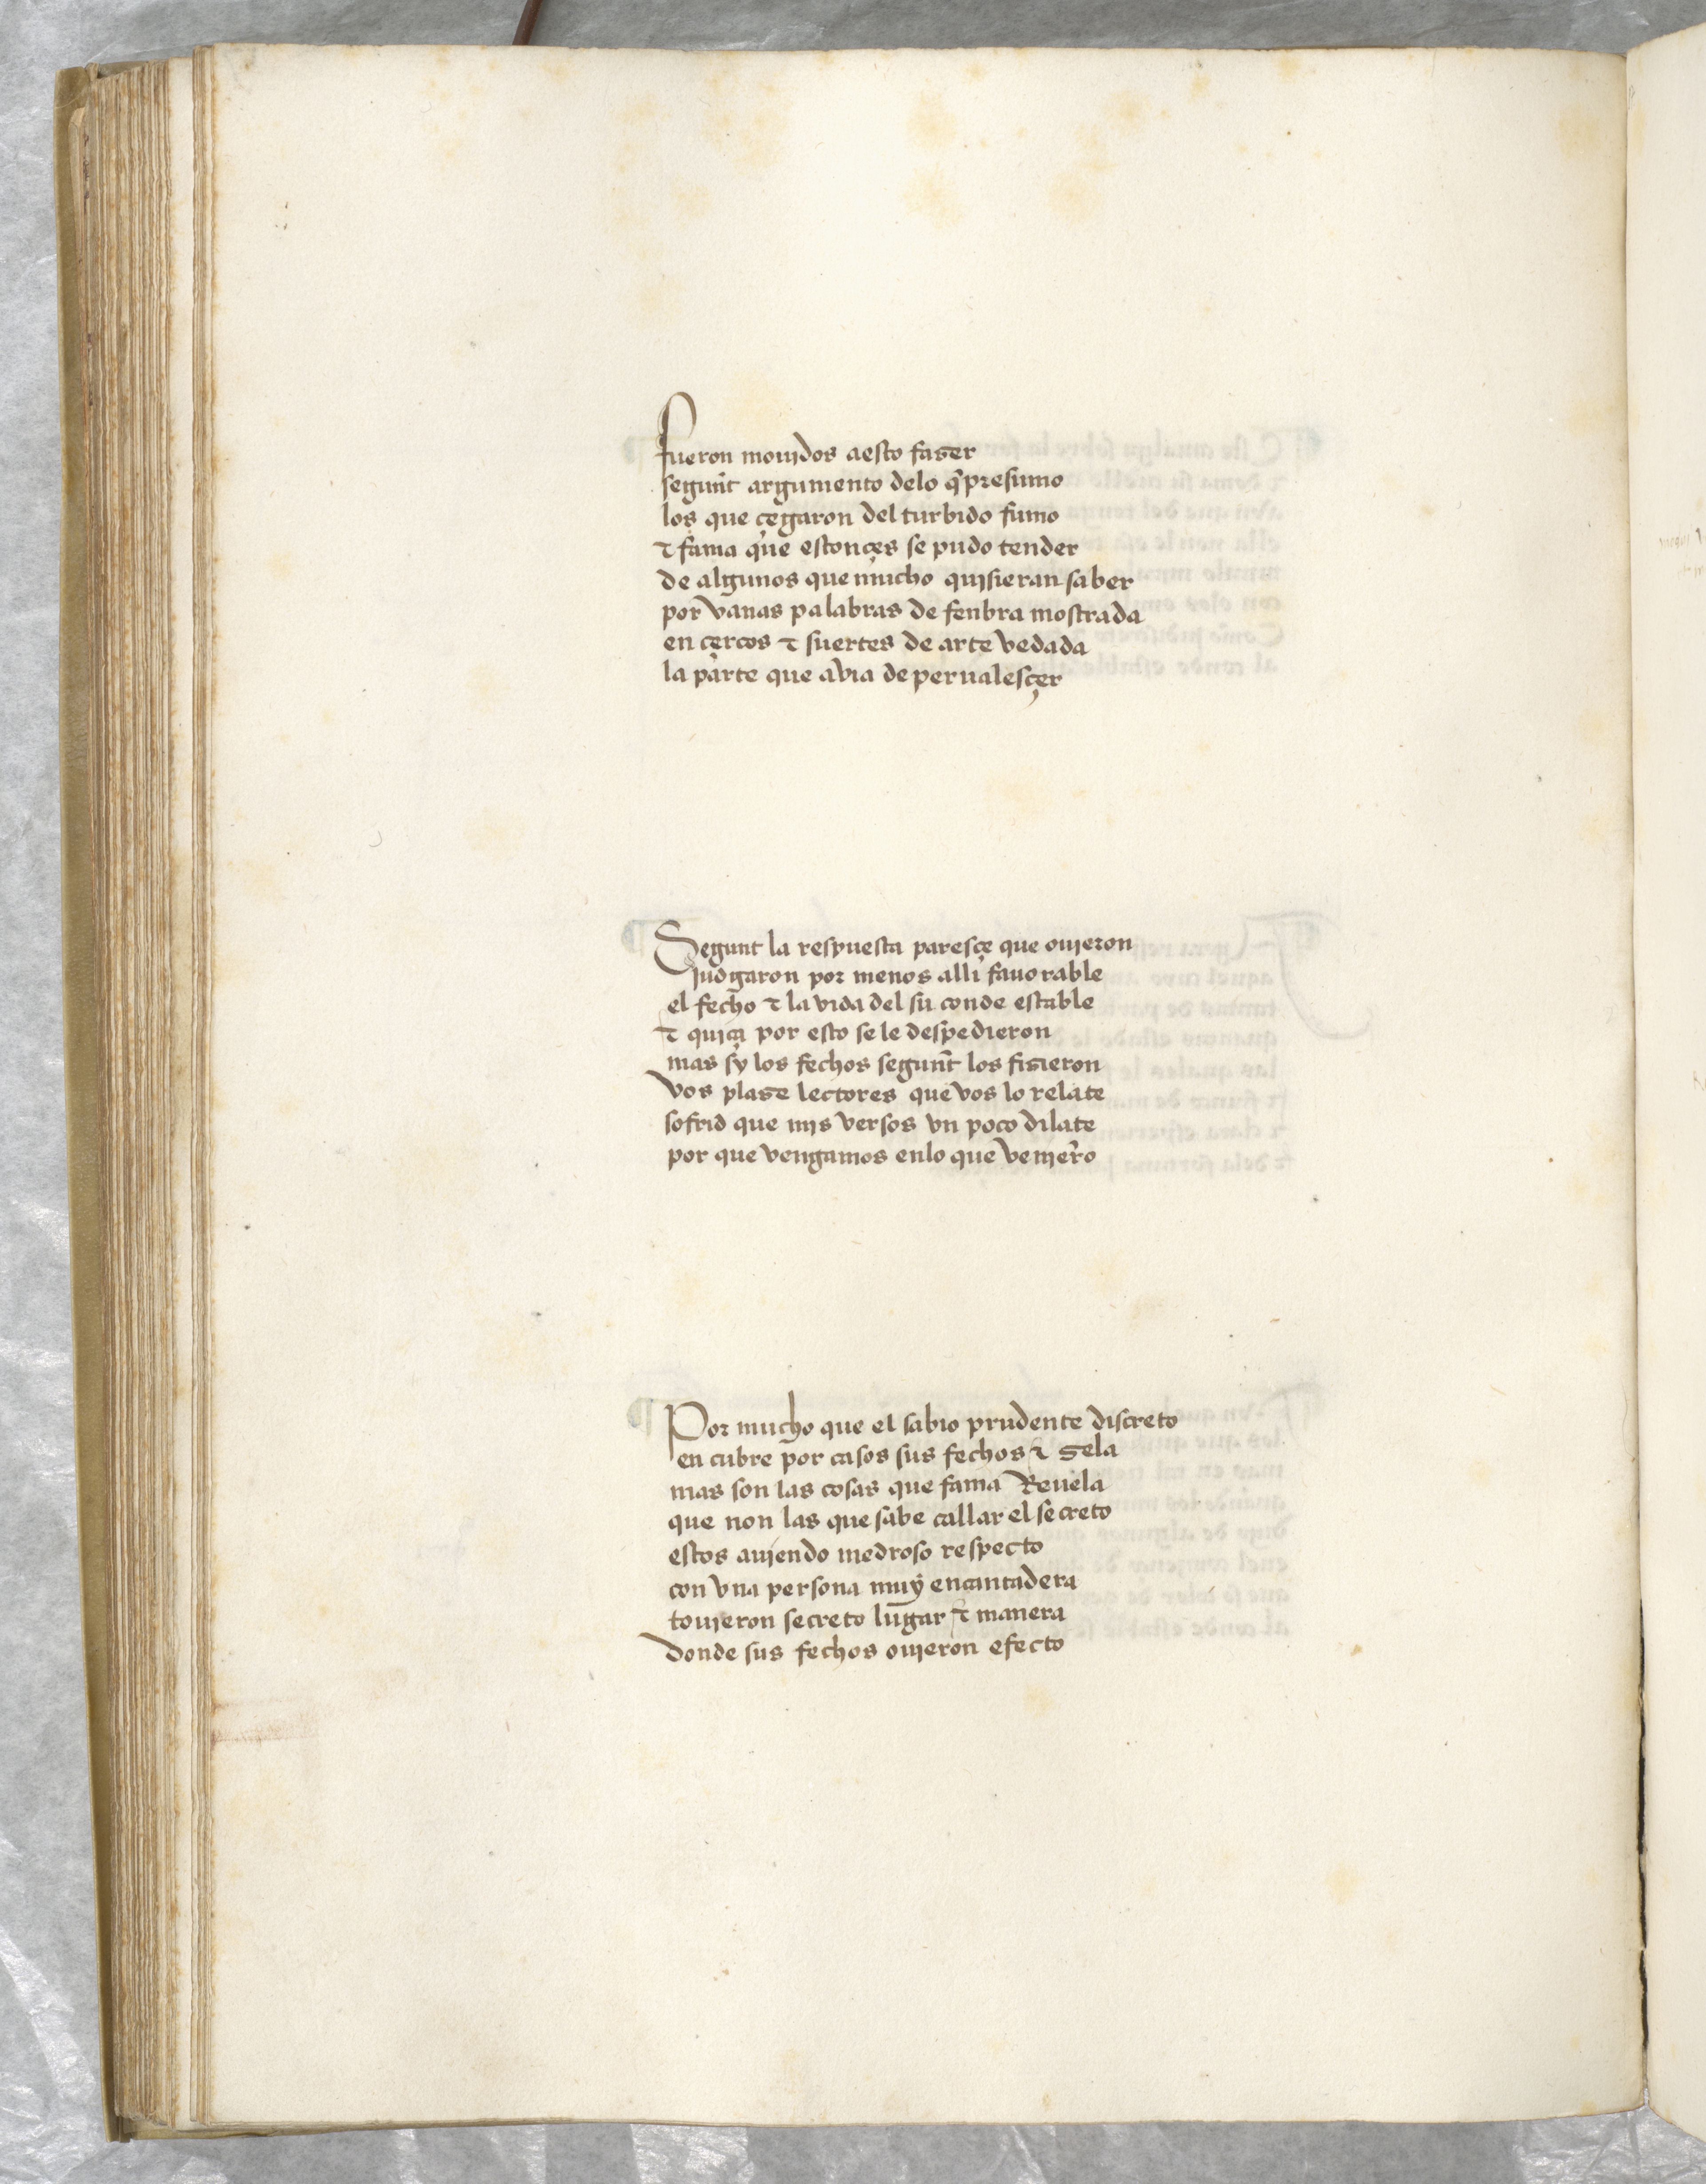 fueron mouidos aesto faser
segunt argumento delo q̃ presumo
los que çegaron del turbido fumo
τ fama que estonçes se pudo tender
de algunos que mucho quisieran saber
por vanas palabras de fenbra mostrada
en çercos τ suertes de arte vedada
la parte que avia de perualesçer
Segunt la respuesta paresçe que ouieron
judgaron por menos alli fauorable
el fecho τ la vida del su conde estable
τ quiça por esto se le despedieron
mas sy los fechos segunt los fisieron
vos plase lectores que vos lo relate
sofrid que mis versos vn poco dilate
por que vengamos enlo que venieron
Por mucho que el sabio prudente discreto
en cubre por casos sus fechos τ sela
mas son las cosas que fama Reuela
que non las que sabe callar el secreto
estos auiendo medroso respecto
con vna persona muy encantadera
touieron secreto lugar τ manera
donde sus fechos ouieron efecto